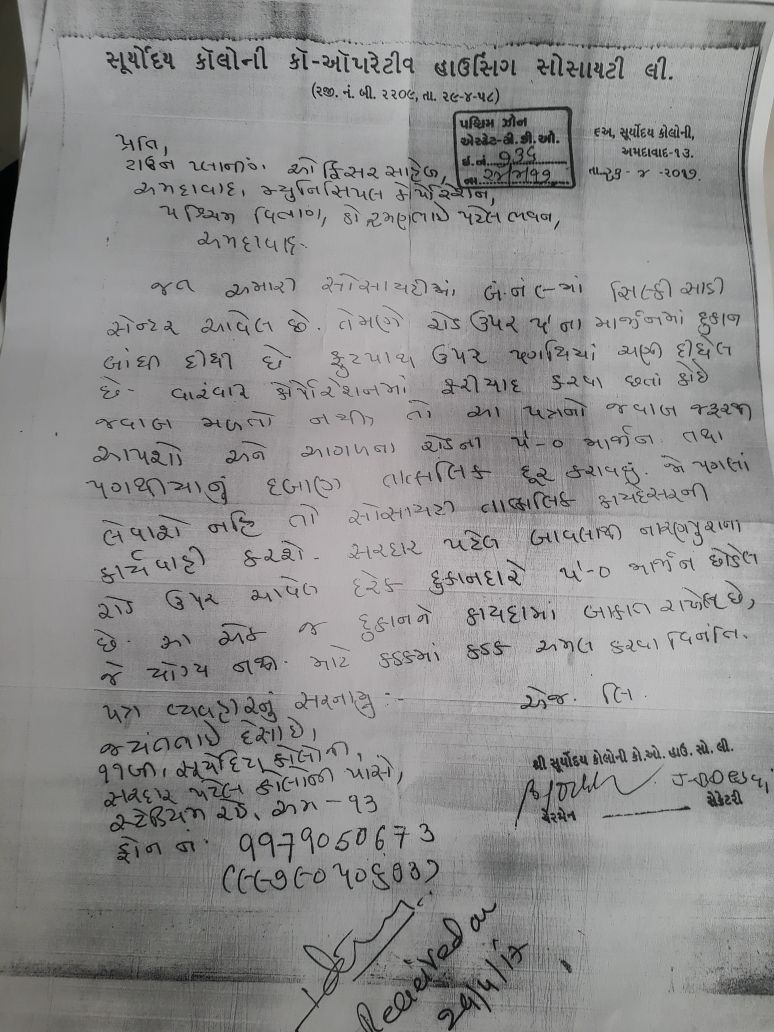 સૂર્યોદય કૉલોની કૉ-ઑપરેટીવ હાઉસિંગ સોસાયટી લી.
(રજી. નં. બી. ૨૨૦૯, તા. ૨૯-૪-૫૮)
પશ્ચિમ ઝોન
એસ્ટેટ-ટી.ડી.ઓ.
ઇ.નં.
તા.
૯અ, સૂર્યોદય કોલોની,
અમદાવાદ-૧૩.
તા. - ૪ -૨૦૧૭.
પ્રતિ,
ટાઉન પ્લાનીંગ ઓફિસર સાહેબ,
અમદાવાદ મ્યુનિસિપલ કોર્પોરેશન,
પશ્ચિમ વિભાગ, ડો રમણભાઇ પટેલ ભવન,
અમદાવાદ.
જત અમારી સોસાયટીમાં, બં.નં ૯-માં સિલ્કી સાડી
સેન્ટર આવેલ છે. તેમણે રોડ ઉપર ૫' ના માર્જીનમાં દુકાન
બાંધી દીધી છે ફુટપાથ ઉપર પગથિયાં ચણી દીધેલ
છે- વારંવાર કોર્પોરેશનમાં ફરીયાદ કરવા છતાં કોઇ
જવાબ મળતો નથી, તો આ પત્રનો જવાબ જરૂરથી
આપશો અને આગળના રોડના ૫'-૦ માર્જીન તથા
પગથીયાનું દબાણ તાત્કાલિક દૂર કરાવવું. જો પગલાં
લેવાશે નહિ તો સોસાયટી તાત્કાલિક કાયદેસરની
કાર્યવાહી કરશે. સરદાર પટેલ બાવલાથી નારણપુરાના
રોડ ઉપર આવેલ દરેક દુકાનદારે ૫'-૦ માર્જીન છોડેલ
છે. આ એક જ દુકાનને કાયદામાં બાકાત રાખેલ છે,
જે યોગ્ય નથી. માટે કડકમાં કડક અમલ કરવા વિનંતિ.
પત્ર વ્યવહારનું સરનામુ :- એજ. લિ.
જયંતભાઇ દેસાઇ,
૧૧બી, સૂર્યોદય કોલોની,
સરદાર પટેલ કોલોની પાસે,
સ્ટેડિયમ રોડ, અમ-૧૩
ફોન નં. 9979050673
(૯૯૭૯૦૫૦૬૭૩)
શ્રી સૂર્યોદય કોલોની કો.ઓ. હાઉ. સો. લી.
ચેરમેન સેક્રેટરી
Received on
29/4/17